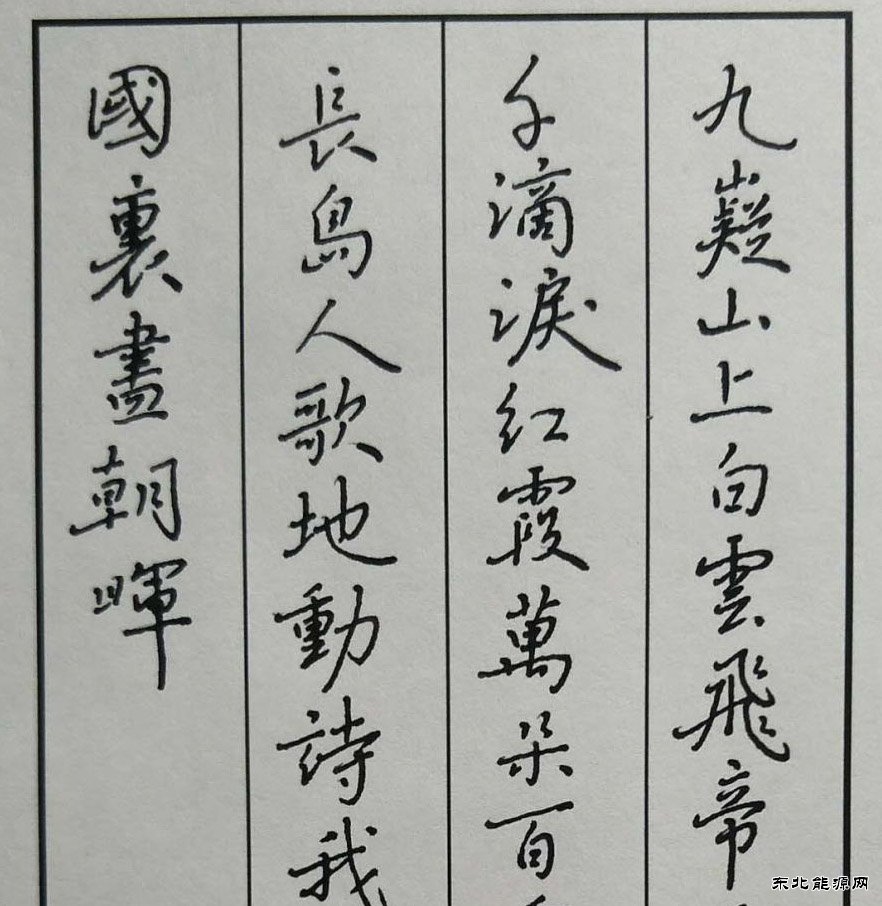 九嶷山上白雲飛帝
千滴淚紅霞萬朵百
長島人歌地動詩我
國裏盡朝暉
东北能源网